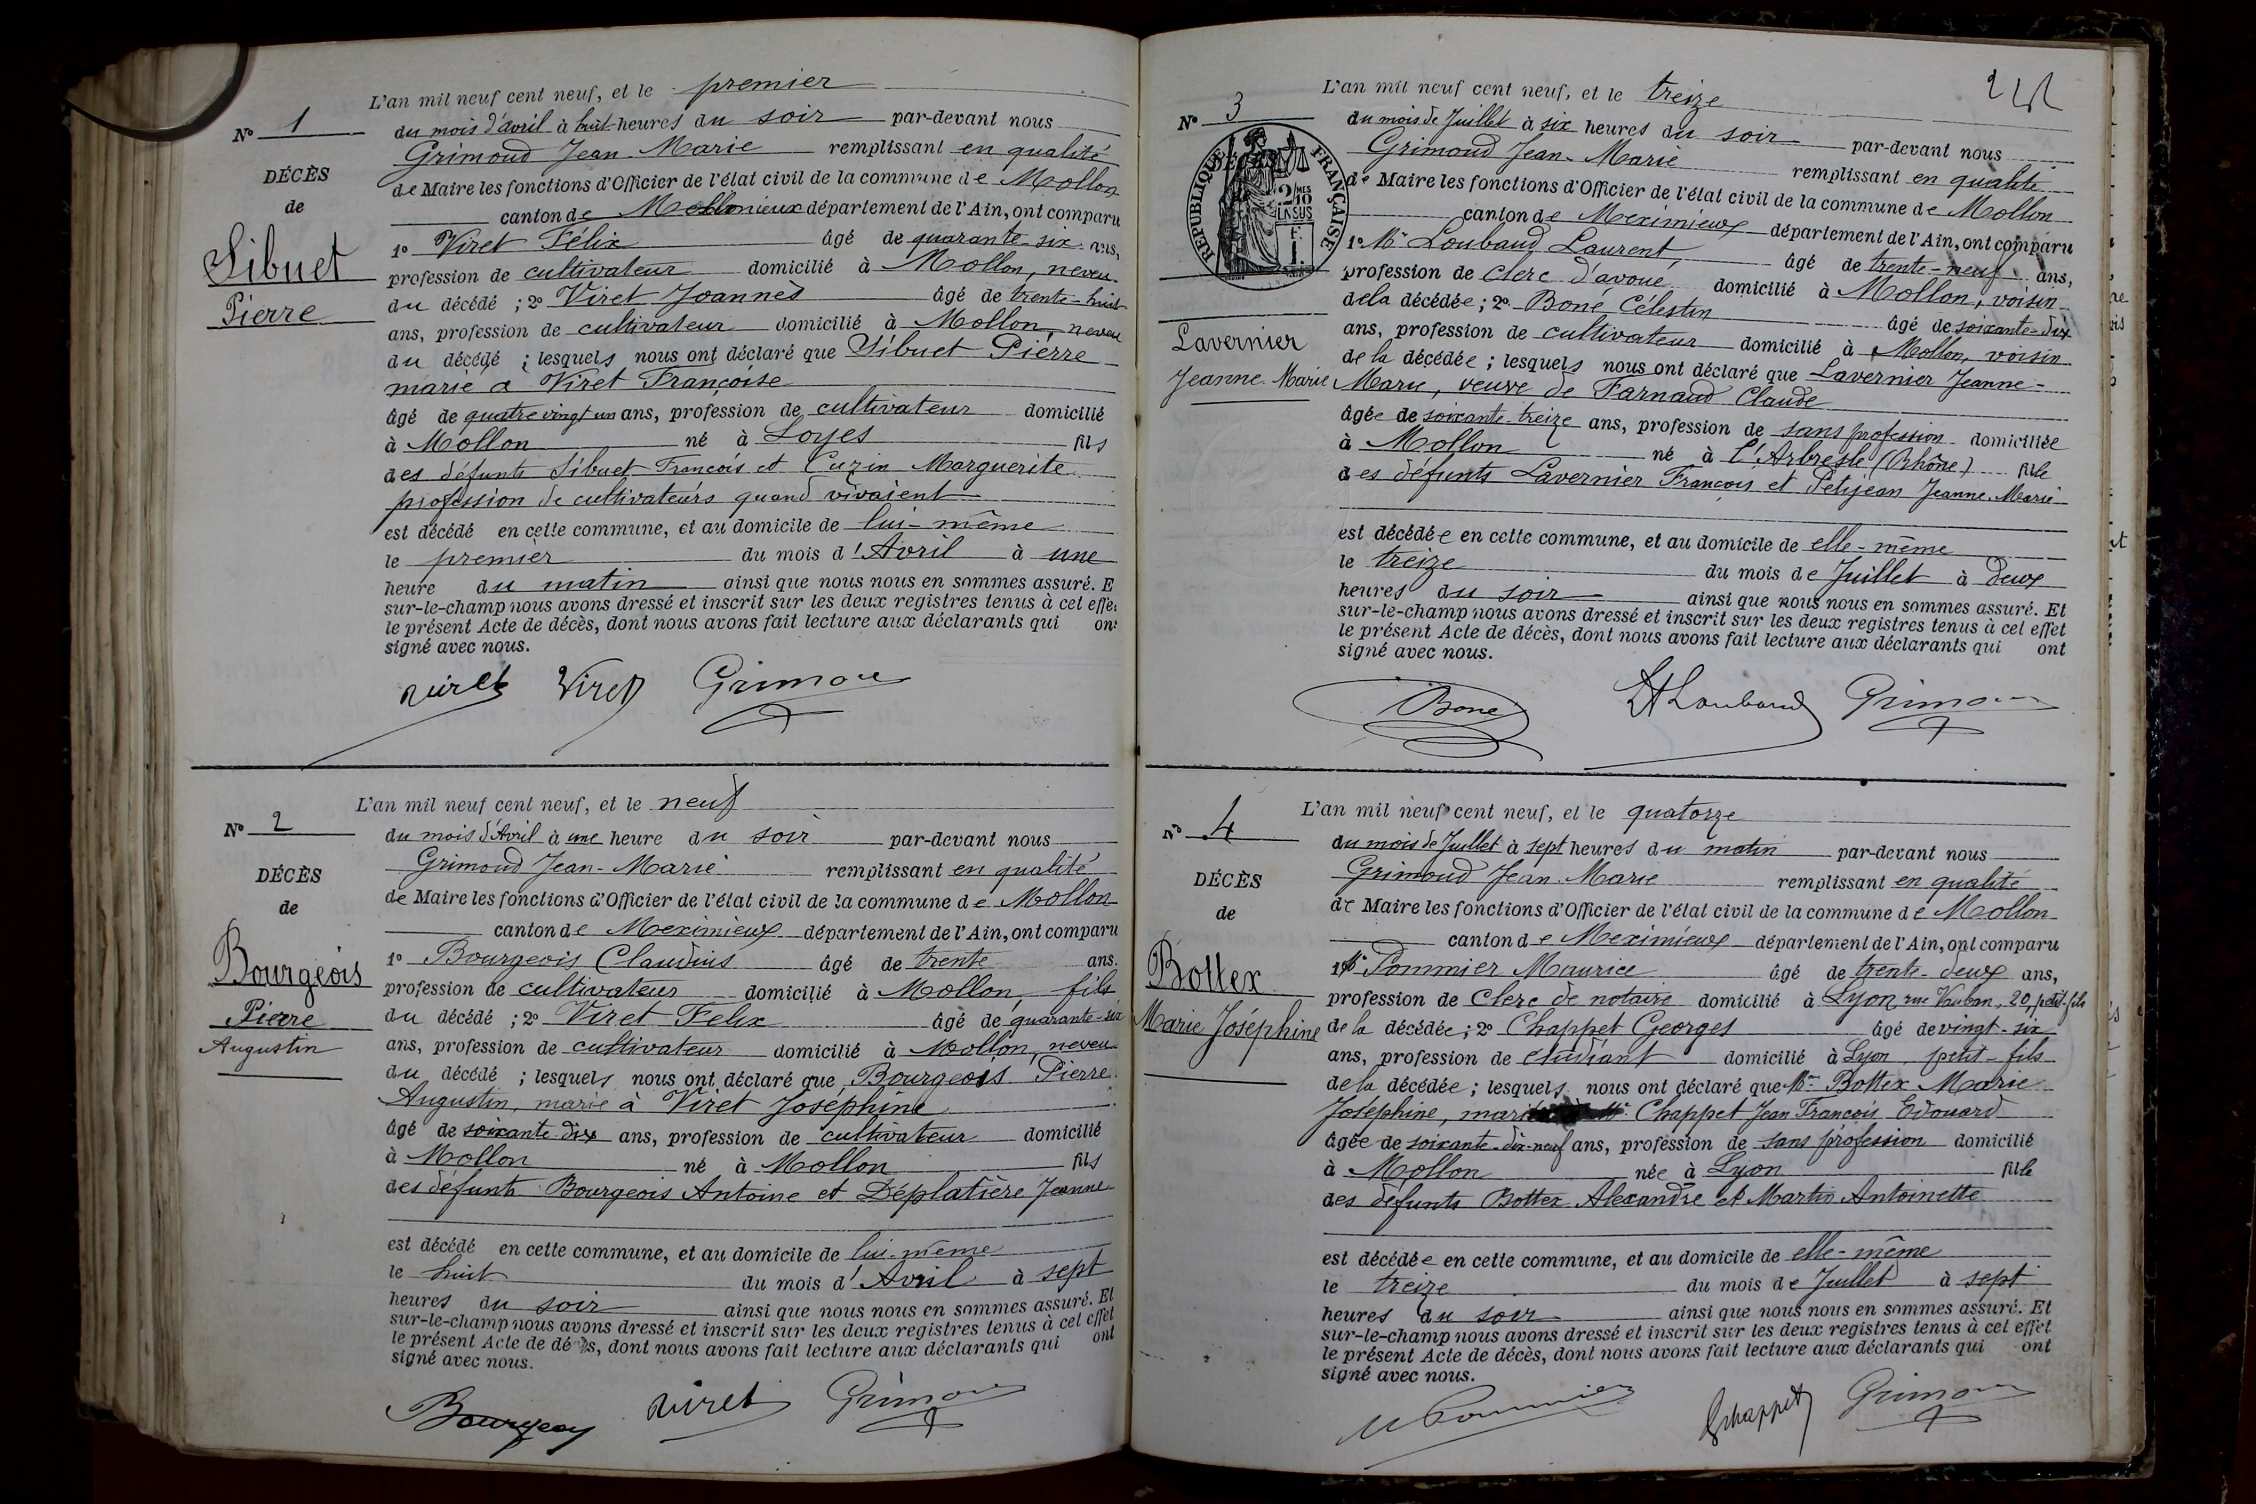 L'an mil neuf cent neuf, et le premier
N° 1
du mois d'avril à huit heures du soir par-devant nous
Grimoud Jean-Marie remplissant en qualité
DÉCÈS
de Maire les fonctions d'Officier de l'état civil de la commune de Mollon
de
canton de département de l'Ain, ont comparu
Sibuet
1° Viret Félix âgé de quarante-six ans,
profession de cultivateur domicilié à Mollon, neveu
Pierre
du décédé ; 2° Viret Joannès âgé de trente-huit
ans, profession de cultivateur domicilié à Mollon, neveu
du décédé ; lesquels nous ont déclaré que Sibuet Pierre
marié à Viret Françoise
âgé de quatre vingt un ans, profession de cultivateur domicilié
à Mollon né à Loyes fils
des défunts Sibuet François et Cuzin Marguerite
profession de cultivateurs quand vivaient
est décédé en cette commune, et au domicile de lui-même
le premier du mois d'Avril à une
heure du matin ainsi que nous nous en sommes assuré. E
sur-le-champ nous avons dressé et inscrit sur les deux registres tenus à cet effe
le présent Acte de décès, dont nous avons fait lecture aux déclarants qui ont
signé avec nous.
Viret Viret Grimoud
L'an mil neuf cent neuf, et le neuf
N° 2
du mois d'Avril à une heure du soir par-devant nous
Grimoud Jean-Marie remplissant en qualité
DÉCÈS
de Maire les fonctions d'Officier de l'état civil de la commune de Mollon
de
canton de Meximieux département de l'Ain, ont comparu
Bourgeois
1° Bourgeois Claudius âgé de trente ans.
profession de cultivateur domicilié à Mollon, fils
Pierre
du décédé ; 2° Viret Felix âgé de quarante-six
Augustin
ans, profession de cultivateur domicilié à Mollon, neveu
du décédé ; lesquels nous ont déclaré que Bourgeois Pierre
Augustin, marié à Viret Joséphine
âgé de soixante-dix ans, profession de cultivateur domicilié
à Mollon né à Mollon fils
des défunts Bourgeois Antoine et Déplatière Jeanne
est décédé en cette commune, et au domicile de lui-même
le huit du mois d'Avril à sept
heures du soir ainsi que nous nous en sommes assuré. Et
sur-le-champ nous avons dressé et inscrit sur les deux registres tenus à cet effet
le présent Acte de décès, dont nous avons fait lecture aux déclarants qui ont
signé avec nous.
Bourgeois Viret Grimoud
L'an mil neuf cent neuf, et le treize
N° 3
du mois de Juillet à six heures du soir par-devant nous
Grimoud Jean-Marie remplissant en qualité
RÉPUBLIQUE FRANÇAISE
2/10 MES EN SUS
de Maire les fonctions d'Officier de l'état civil de la commune de Mollon
canton de Meximieux département de l'Ain, ont comparu
1° Mr Loubaud Laurent, âgé de trente-neuf ans,
profession de clerc d'avoué domicilié à Mollon, voisin
de la décédée ; 2° Bone Célestin âgé de soixante-dix
Lavernier
ans, profession de cultivateur domicilié à Mollon, voisin
de la décédée ; lesquels nous ont déclaré que Lavernier Jeanne-
Jeanne-Marie
Marie, veuve de Farnaud Claude
âgée de soixante-treize ans, profession de sans profession domiciliée
à Mollon né à l'Arbresle (Rhône) fille
des défunts Lavernier François et Petijean Jeanne-Marie
est décédée en cette commune, et au domicile de elle-même
le treize du mois de Juillet à deux
heures du soir ainsi que nous nous en sommes assuré. Et
sur-le-champ nous avons dressé et inscrit sur les deux registres tenus à cet effet
le présent Acte de décès, dont nous avons fait lecture aux déclarants qui ont
signé avec nous.
Bone Loubaud Grimoud
L'an mil neuf cent neuf, et le quatorze
N° 4
du mois de Juillet à sept heures du matin par-devant nous
Grimoud Jean-Marie remplissant en qualité
DÉCÈS
de Maire les fonctions d'Officier de l'état civil de la commune de Mollon
de
canton de Meximieux département de l'Ain, ont comparu
Bottex
1° Mr Pommier Maurice âgé de trente-deux ans,
profession de clerc de notaire domicilié à Lyon rue Vauban, 20, petit-fils
Marie Joséphine
de la décédée ; 2° Chappet Georges âgé de vingt-six
ans, profession de étudiant domicilié à Lyon, petit-fils
de la décédée ; lesquels nous ont déclaré que Me Bottex Marie
Joséphine, Mr Chappet Jean François Edouard
âgée de soixante-dix-neuf ans, profession de sans profession domicilié
à Mollon née à Lyon fille
des défunts Bottex Alexandre et Martin Antoinette
est décédée en cette commune, et au domicile de elle-même
le treize du mois de Juillet à sept
heures du soir ainsi que nous nous en sommes assuré. Et
sur-le-champ nous avons dressé et inscrit sur les deux registres tenus à cet effet
le présent Acte de décès, dont nous avons fait lecture aux déclarants qui ont
signé avec nous.
M Pommier Chappet Grimoud